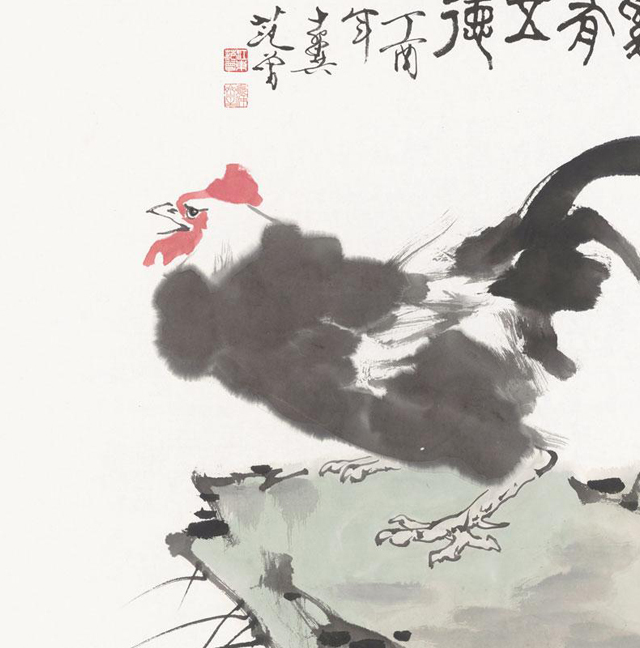 有五德
丁酉
年
十翼
范曾